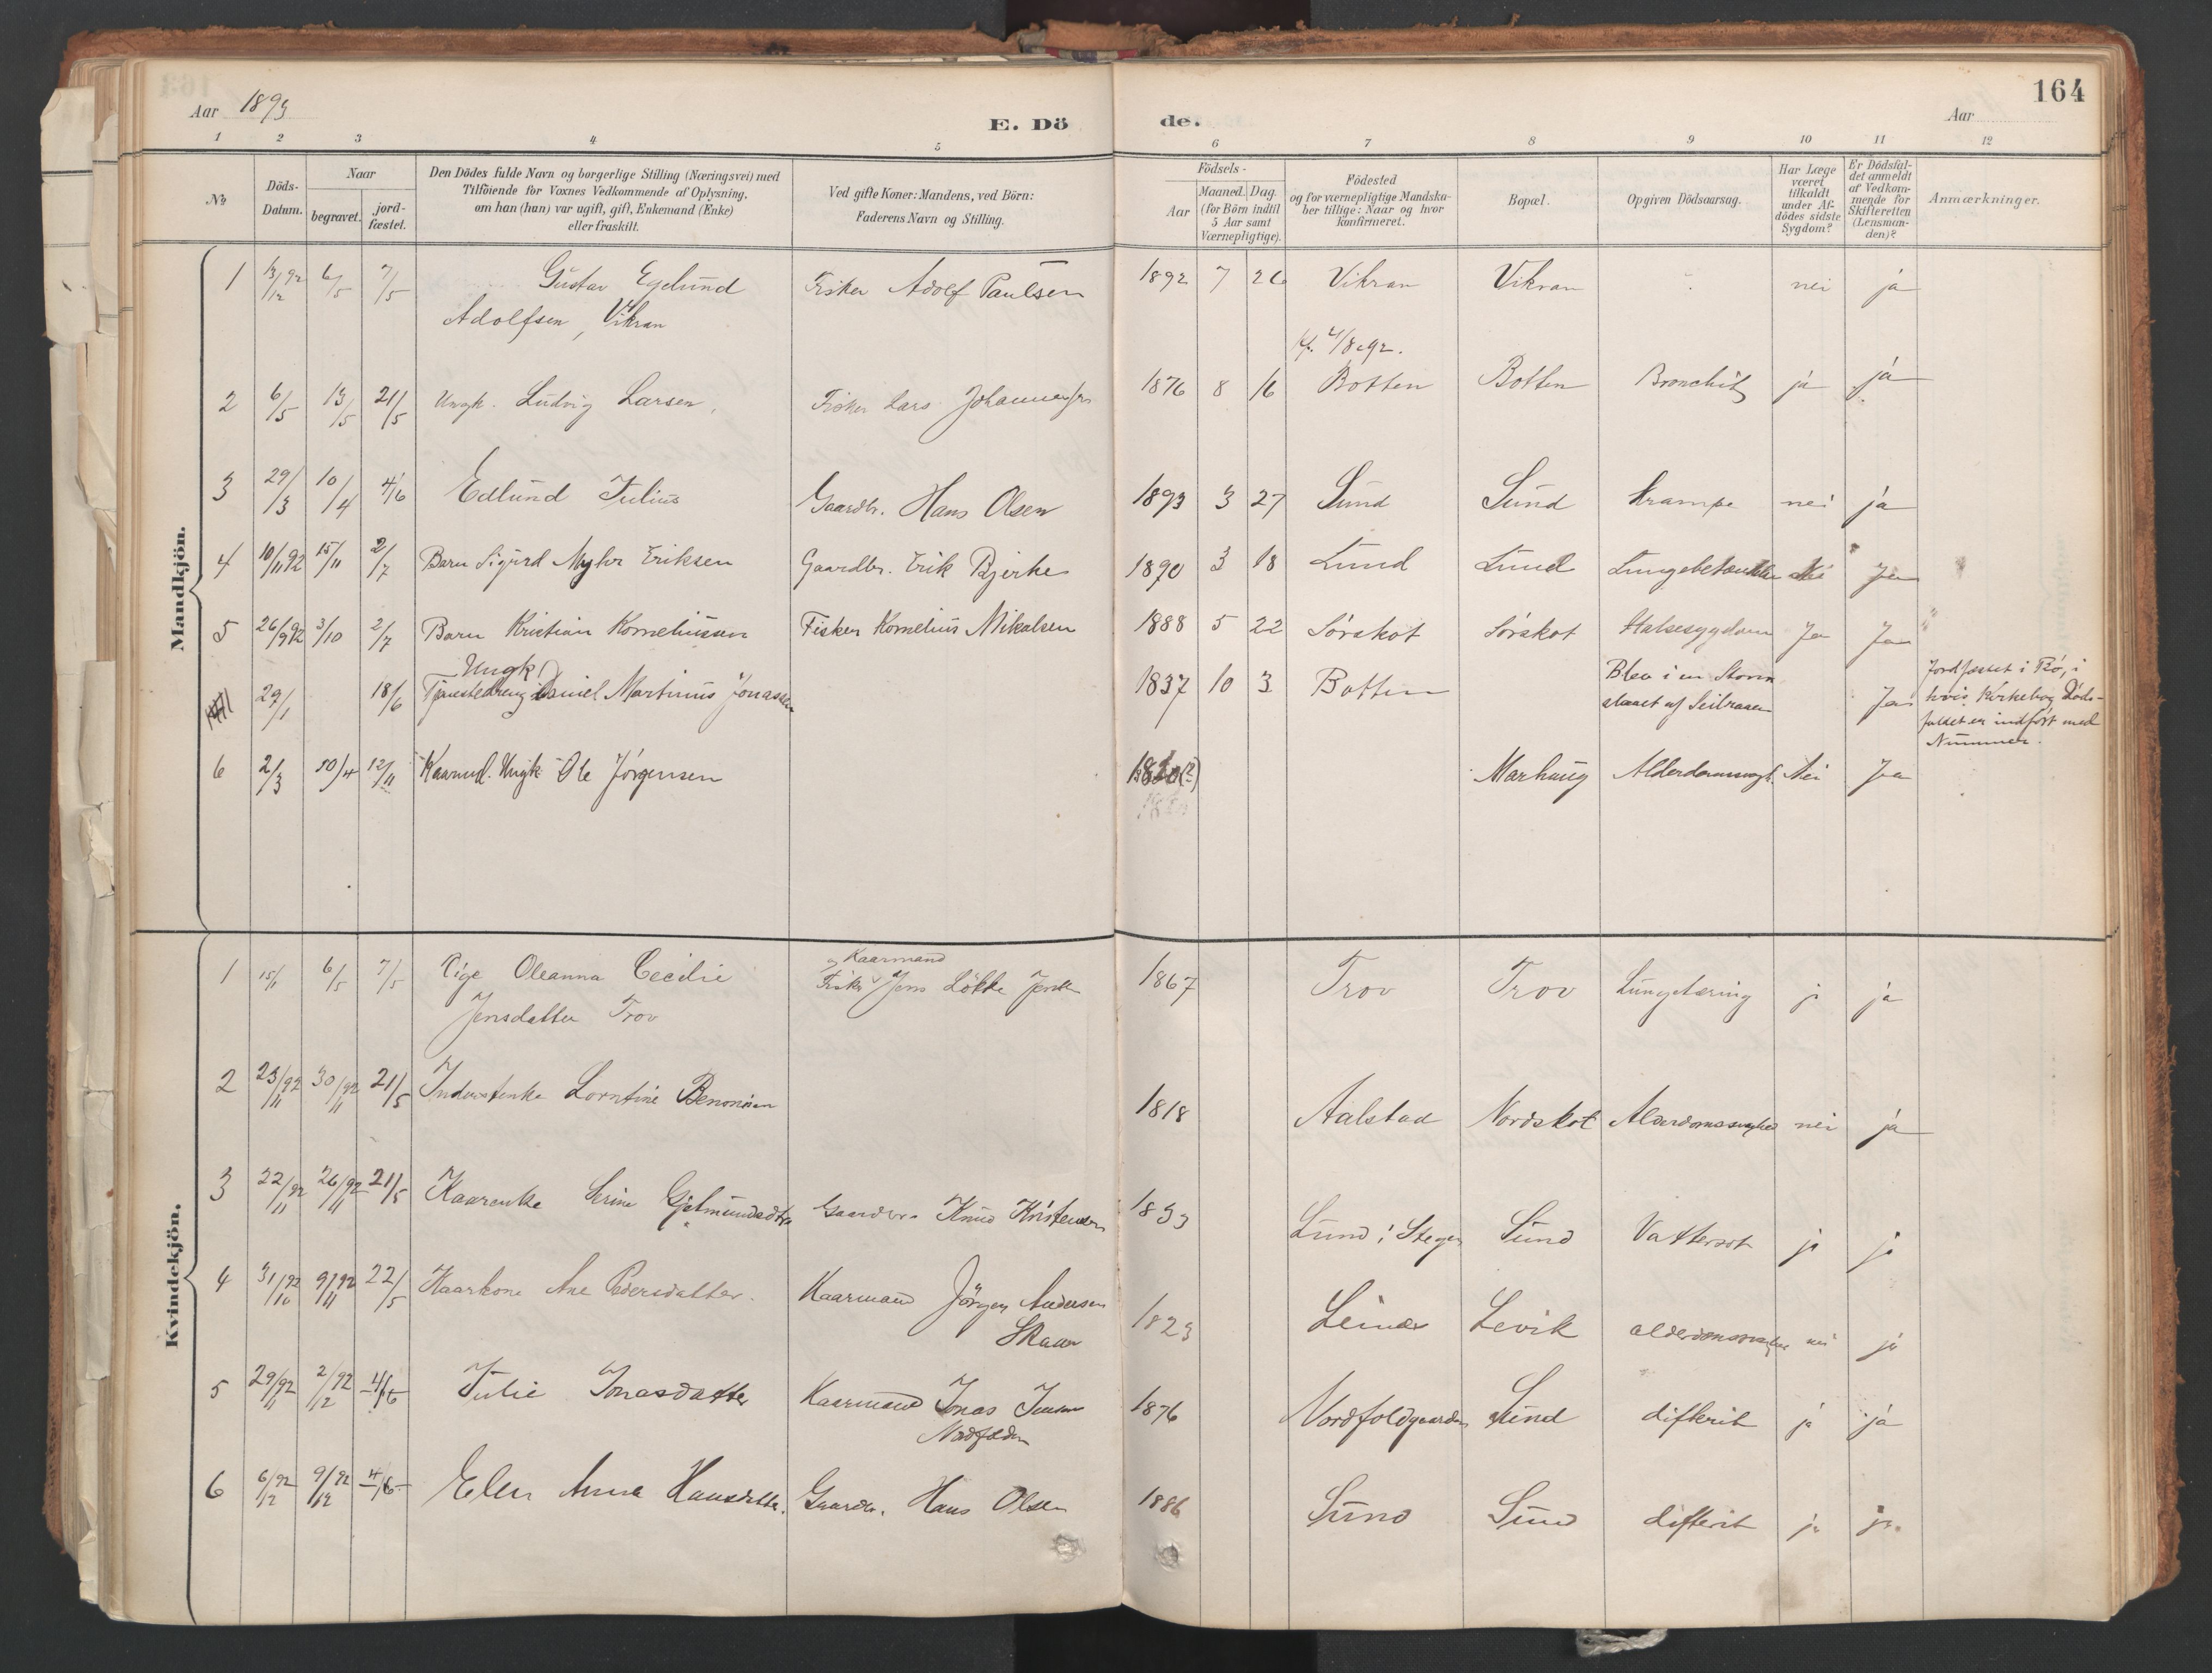 164
Aar 1893
E. Dö
de.
Aar
1 2 3 4 5 6 7 8 9 10 11 12
№
Döds-Datum.
Naar
begravet.
jord-fæstet.
Den Dödes fulde Navn og borgerlige Stilling (Næringsvei) med
Tilföiende for Voxnes Vedkommende af Oplysning,
om han (hun) var ugift, gift, Enkemand (Enke)
eller fraskilt.
Ved gifte Koner: Mandens, ved Börn:
Faderens Navn og Stilling.
Födsels-
Aar
Maaned. Dag.
(for Börn indtil
5 Aar samt
Værnepligtige).
Födested
og for værnepligtige Mandska-
ber tillige: Naar og hvor
konfirmeret.
Bopæl.
Opgiven Dödsaarsag.
Har Læge
været
tilkaldt
under Af-
dödes sidste
Sygdom?
Er Dödsfal-
det anmeldt
af Vedkom-
mende for
Skifteretten
(Lensman-
den)?
Anmærkninger.
Mandkjön.
1 13/12 92 6/5 7/5 Gustav Egelund Fisker Adolf Paulsen 1892 7 26 Vikran Vikran nei ja
Adolfsen, Vikran
2 6/5 13/5 21/5 Ungk. Ludvig Larsen, Fisker Lars 1876 8 16 Botten Botten Bronchit ja ja
3 29/3 10/4 4/6 Edlund Julius Gaardbr. Hans Olsen 1893 3 27 Sund Sund Krampe nei ja
4 10/11 92 15/11 2/7 Barn Sigurd Eriksen Gaardbr. Erik Bjerke 1890 3 18 Lund Lund Nei Ja
5 26/9 92 3/10 2/7 Barn Kristian Korneliussen Fisker Kornelius Mikalsen 1888 5 22 Sörskot Sörskot Halsesygdom Ja Ja
Ungk
29/1 18/6 Tjenestedreng Daniel Martinus Jonassen 1837 10 3 Botten Blev i en Storm
slaaet af Seilraaen Ja
Jordfæstet i Bö, i
hvis Kirkebog Döds-
faldet er indfört med
Nummer.
6 2/3 10/4 12/11 Kaarmd. Ungk Ole Jörgensen (?) Marhaug Alderdomssvagh. Nei Ja
Kvindekjön.
1 15/1 6/5 7/5 Pige Oleanna Cecilie Fisker og Kaarmand Jens Lökke 1867 Trov Trov Lungetæring ja ja
Jensdatter Trov
2 23/11 92 30/11 92 21/5 Inderstenke Lorntine Benonisen 1818 Aalstad Nordskot Alderdomssvaghed nei ja
3 22/11 92 26/11 92 21/5 Kaarenke Serine Gjetmundsdtr Gaardbr. Knud Kristensen 1833 Lund i Stegen Sund Vattersot ja ja
4 31/10 92 9/11 92 22/5 Kaarkone Ane Pedersdatter. Kaarmand Jörgen Andersen 1823 Leinæs Levik alderdomssvaghed nei ja
Skaar
5 29/11 92 2/12 92 4/6 Julie Jonasdatter Kaarmand Jonas Jensen 1876 Nordfoldgaarden Sund difterit ja ja
Nordfolden
6 6/12 92 9/12 92 4/6 Elen Anna Hansdatter. Gaardbr. Hans Olsen 1886 Sund Sund difterit ja ja.